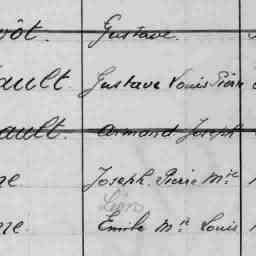 vôt. Gustave.
ault. Gustave Louis Pierre
ault. Armand Joseph
re. Joseph. Pierre Mie
Léon
re. Emile Mie Louis